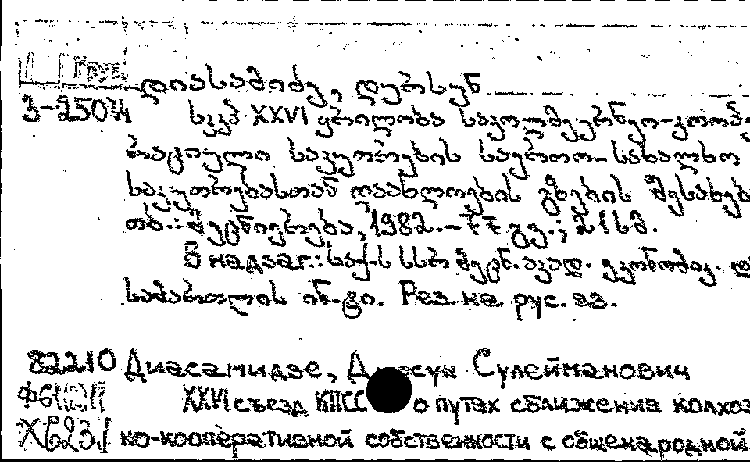 Груз.
დიასამიძე, დურსუნ
3-25074 სკკპ XXVI ყრილობა საკოლმეურნეო-კოოპე-
რაციული საკუთრების საერთო-სახალხო
საკუთრებასთან დაახლოების გზების შესახებ
თბ.: მეცნიერება, 1982. — 77 გვ.; 21 სმ.
В надзаг.: საქ. სსრ მეცნ. აკად. ეკონომიკ. და
სამართლის ინ-ტი. Рез. на рус. яз.
82210 Диасамидзе, Дурсун Сулейманович
XXVI съезд КПСС о путях сближения колхоз
Х623.1 но-кооперативной собственности с общенародной